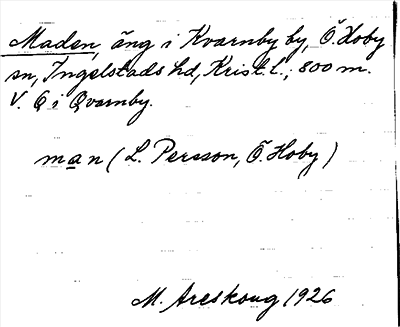 Maden, äng i Kvarnby by, Ö. Hoby
sn, Ingelstads hd, Krist. L.; 800 m.
V. Q i Qvarnby.
man (L. Persson, Ö. Hoby)
M. Areskoug 1926